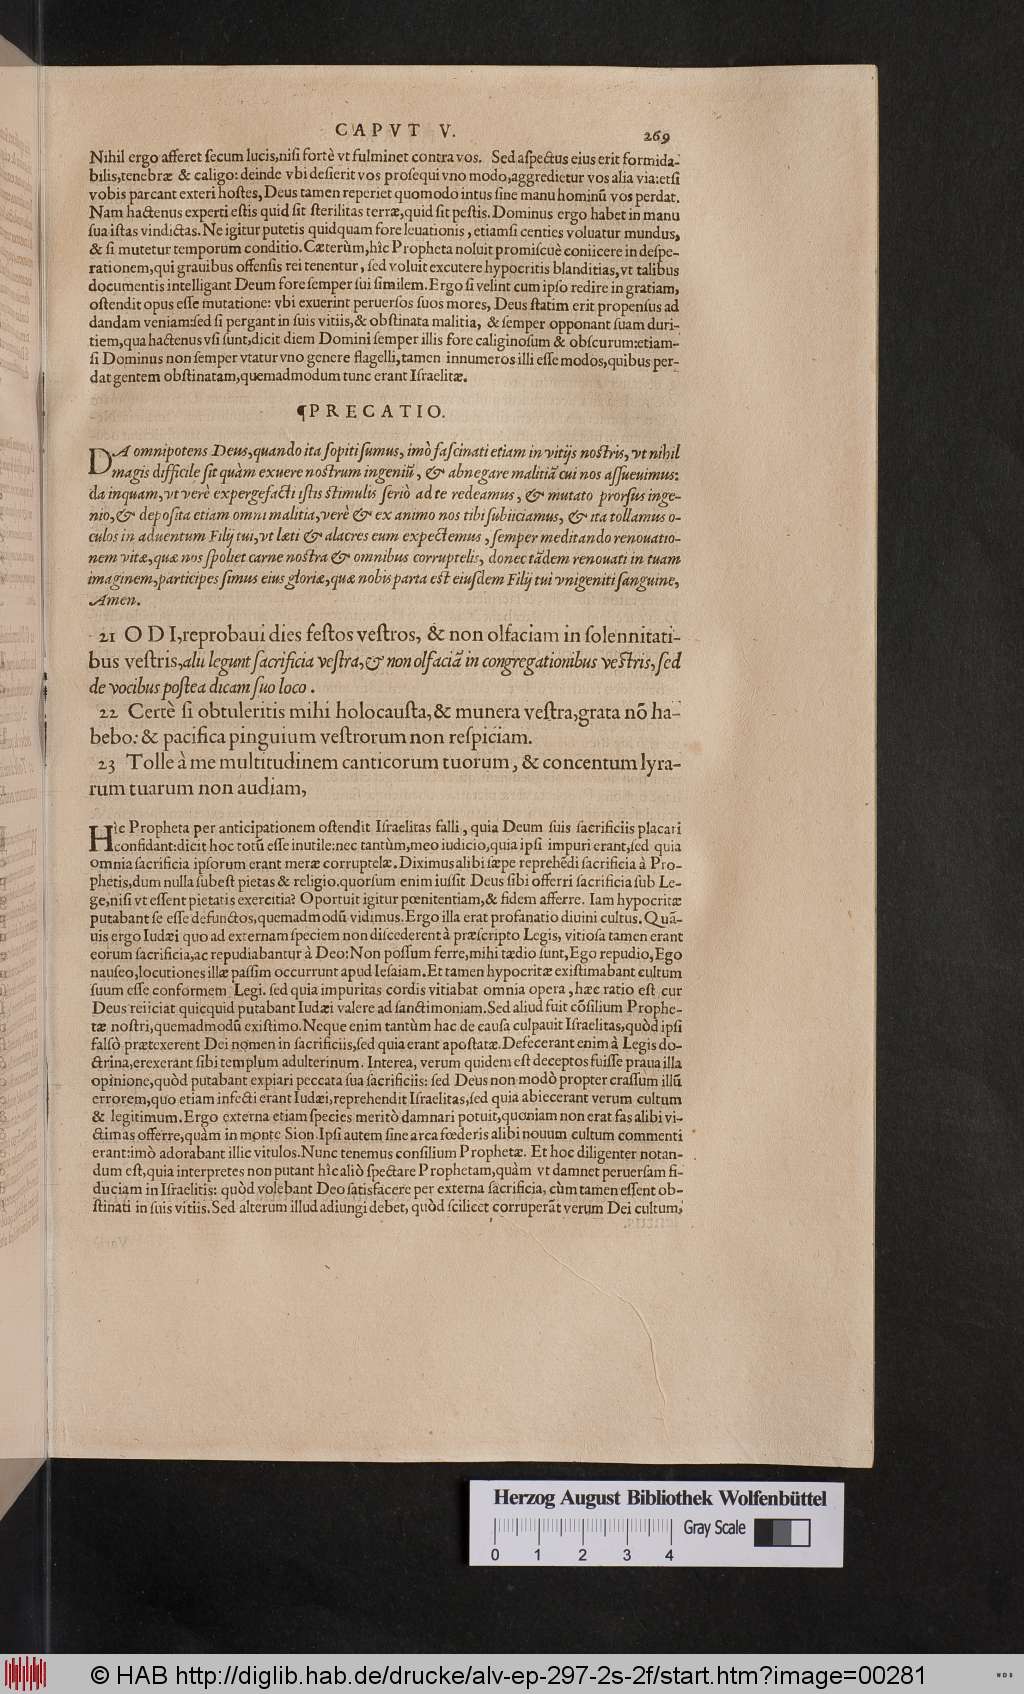 CAPVT V.
269
Nihil ergo afferet ſecum lucis,niſi fortè vt fulminet contra vos. Sed aſpectus eius erit formida-
bilis,tenebræ & caligo: deinde vbi deſierit vos proſequi vno modo,aggredietur vos alia via:etſi
vobis parcant exteri hoſtes, Deus tamen reperiet quomodo intus ſine manu hominũ vos perdat.
Nam hactenus experti eſtis quid ſit ſterilitas terræ,quid ſit peſtis. Dominus ergo habet in manu
ſua iſtas vindictas. Ne igitur putetis quidquam fore leuationis, etiamſi centies voluatur mundus,
& ſi mutetur temporum conditio. Cæterùm,hîc Propheta noluit promiſcuè coniicere in deſpe-
rationem,qui grauibus offenſis rei tenentur, ſed voluit excutere hypocritis blanditias,vt talibus
documentis intelligant Deum fore ſemper ſui ſimilem. Ergo ſi velint cum ipſo redire in gratiam,
oſtendit opus eſſe mutatione: vbi exuerint peruerſos ſuos mores, Deus ſtatim erit propenſus ad
dandam veniam:ſed ſi pergant in ſuis vitiis,& obſtinata malitia, & ſemper opponant ſuam duri-
tiem,qua hactenus vſi ſunt,dicit diem Domini ſemper illis fore caliginoſum & obſcurum:etiam-
ſi Dominus non ſemper vtatur vno genere flagelli,tamen innumeros illi eſſe modos,quibus per-
dat gentem obſtinatam,quemadmodum tunc erant Iſraelitæ.
¶PRECATIO.
DA omnipotens Deus,quando ita ſopiti ſumus, imò faſcinati etiam in vitijs noſtris, vt nihil
magis difficile ſit quàm exuere noſtrum ingeniũ, & abnegare malitiã cui nos aſſueuimus:
da inquam, vt verè expergefacti iſtis ſtimulis ſeriò ad te redeamus, & mutato prorſus inge-
nio,& depoſita etiam omni malitia,verè & ex animo nos tibi ſubiiciamus, & ita tollamus o-
culos in aduentum Filij tui, vt læti & alacres eum expectemus, ſemper meditando renouatio-
nem vitæ, quæ nos ſpoliet carne noſtra & omnibus corruptelis, donec tãdem renouati in tuam
imaginem,participes ſimus eius gloriæ,quæ nobis parta eſt eiuſdem Filij tui vnigeniti ſanguine,
Amen.
21 ODI,reprobaui dies feſtos veſtros, & non olfaciam in ſolennitati-
bus veſtris,alii legunt ſacrificia veſtra,& non olfaciã in congregationibus veſtris, ſed
de vocibus poſtea dicam ſuo loco.
22 Certè ſi obtuleritis mihi holocauſta,& munera veſtra,grata nõ ha-
bebo: & pacifica pinguium veſtrorum non reſpiciam.
23 Tolle à me multitudinem canticorum tuorum, & concentum lyra-
rum tuarum non audiam,
HIc Propheta per anticipationem oſtendit Iſraelitas falli, quia Deum ſuis ſacrificiis placari
confidant:dicit hoc totũ eſſe inutile:nec tantùm,meo iudicio,quia ipſi impuri erant,ſed quia
omnia ſacrificia ipſorum erant meræ corruptelæ. Diximus alibi ſæpe reprehẽdi ſacrificia à Pro-
phetis,dum nulla ſubeſt pietas & religio.quorſum enim iuſſit Deus ſibi offerri ſacrificia ſub Le-
ge,niſi vt eſſent pietatis exercitia? Oportuit igitur pœnitentiam,& fidem afferre. Iam hypocritæ
putabant ſe eſſe defunctos,quemadmodũ vidimus. Ergo illa erat profanatio diuini cultus. Quã-
uis ergo Iudæi quo ad externam ſpeciem non diſcederent à præſcripto Legis, vitioſa tamen erant
eorum ſacrificia,ac repudiabantur à Deo: Non poſſum ferre,mihi tædio ſunt, Ego repudio, Ego
nauſeo,locutiones illæ paſſim occurrunt apud Ieſaiam. Et tamen hypocritæ exiſtimabant cultum
ſuum eſſe conformem Legi. ſed quia impuritas cordis vitiabat omnia opera, hæc ratio eſt cur
Deus reiiciat quicquid putabant Iudæi valere ad ſanctimoniam. Sed aliud fuit cõſilium Prophe-
tæ noſtri,quemadmodũ exiſtimo. Neque enim tantùm hac de cauſa culpauit Iſraelitas,quòd ipſi
falſò prætexerent Dei nomen in ſacrificiis,ſed quia erant apoſtatæ. Defecerant enim à Legis do-
ctrina,erexerant ſibi templum adulterinum. Interea, verum quidem eſt deceptos fuiſſe praua illa
opinione,quòd putabant expiari peccata ſua ſacrificiis: ſed Deus non modò propter craſſum illũ
errorem,quo etiam infecti erant Iudæi,reprehendit Iſraelitas,ſed quia abiecerant verum cultum
& legitimum. Ergo externa etiam ſpecies meritò damnari potuit,quoniam non erat fas alibi vi-
ctimas offerre,quàm in monte Sion. Ipſi autem ſine arca fœderis alibi nouum cultum commenti
erant:imò adorabant illic vitulos. Nunc tenemus conſilium Prophetæ. Et hoc diligenter notan-
dum eſt,quia interpretes non putant hîc aliò ſpectare Prophetam,quàm vt damnet peruerſam fi-
duciam in Iſraelitis: quòd volebant Deo ſatisfacere per externa ſacrificia, cùm tamen eſſent ob-
ſtinati in ſuis vitiis. Sed alterum illud adiungi debet, quòd ſcilicet corruperãt verum Dei cultum,
Herzog August Bibliothek Wolfenbüttel
Gray Scale
0 1 2 3 4
© HAB http://diglib.hab.de/drucke/alv-ep-297-2s-2f/start.htm?image=00281